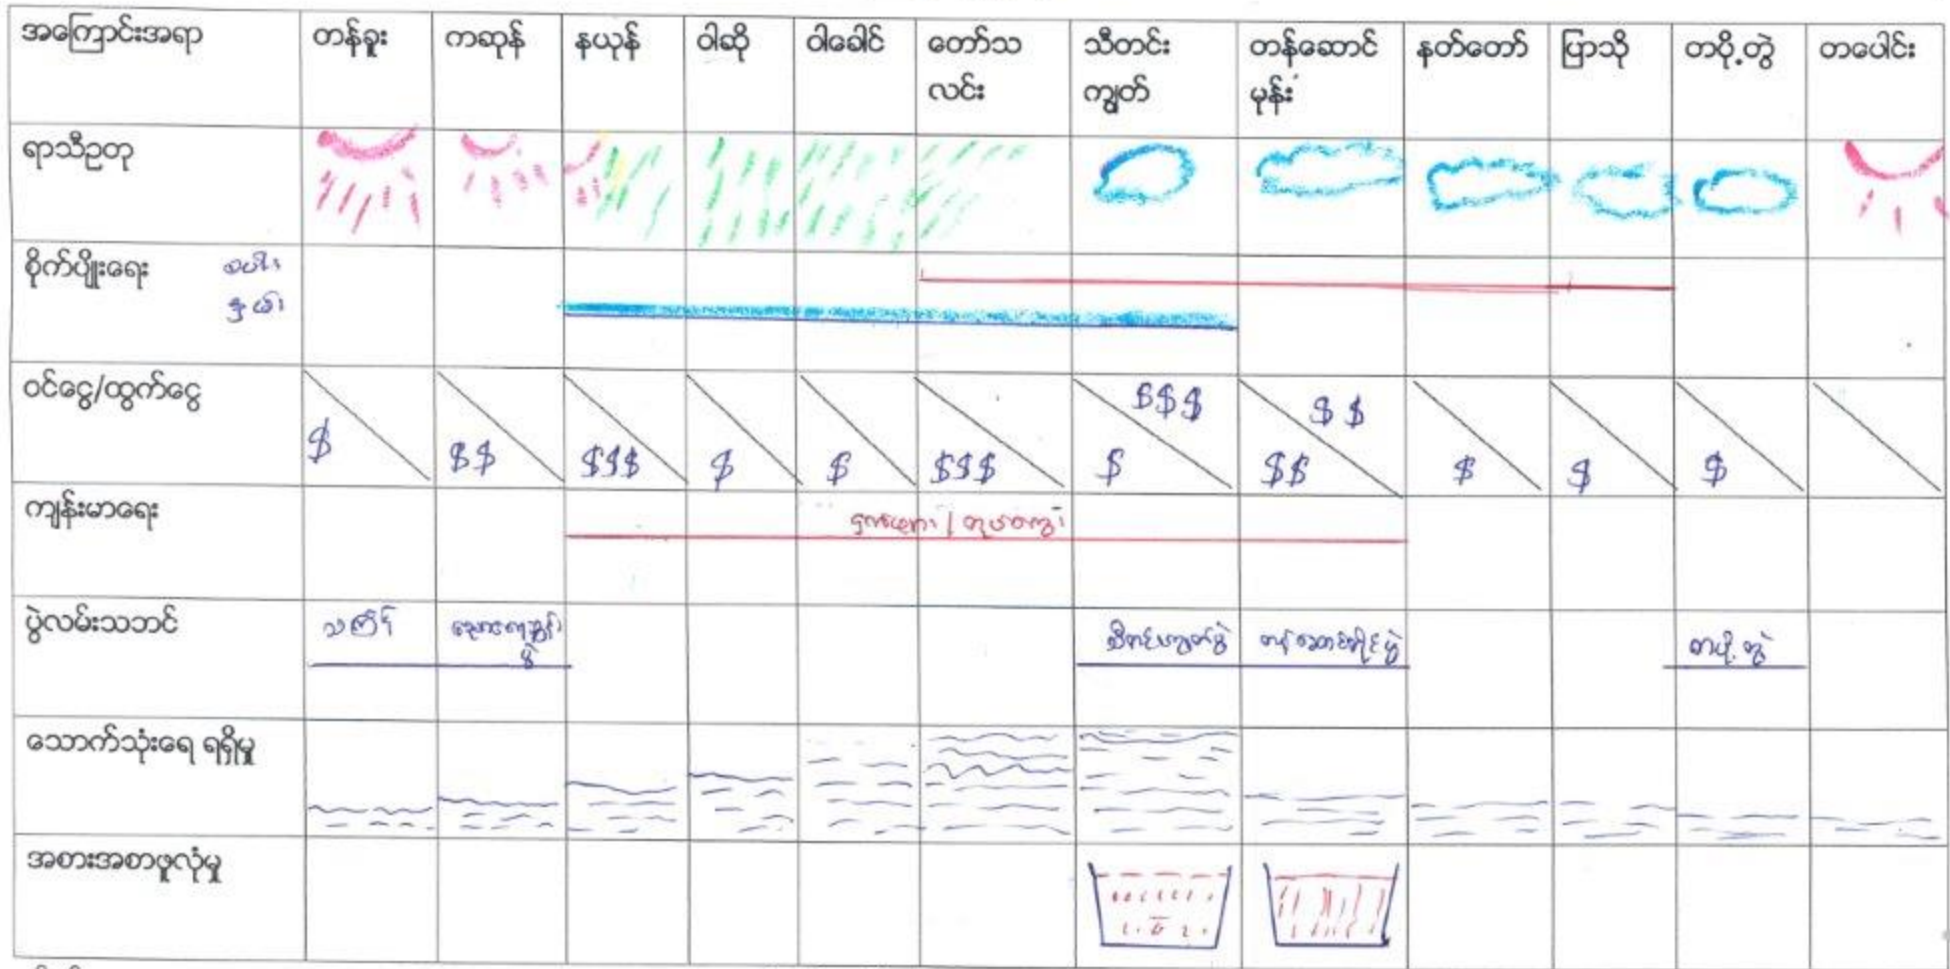 အကြောင်းအရာ တန်ခူး ကဆုန် နယုန် ဝါဆို ဝါခေါင် တော်သ သီတင်း တန်ဆောင် နတ်တော် ပြာသို တပို့တွဲ တပေါင်း
လင်း ကျွတ် မုန်း
ရာသီဥတု
စိုက်ပျိုးရေး စပါး
နှမ်း
ဝင်ငွေ/ထွက်ငွေ $$$ $$
$ $$ $$$ $ $ $$$ $ $$ $ $ $
ကျန်းမာရေး
ငှက်ဖျား / တုပ်ကွေး
ပွဲလမ်းသဘင် သင်္ကြန် ပွဲ သီတင်းကျွတ်ပွဲ တန်ဆောင်တိုင်ပွဲ တပို့တွဲ
သောက်သုံးရေ ရရှိမှု
အစားအစာဖူလုံမှု